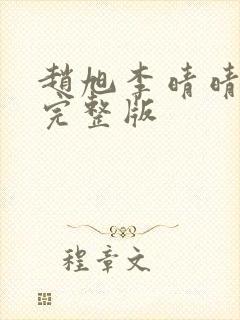 趙旭李晴晴
完整版
程章文